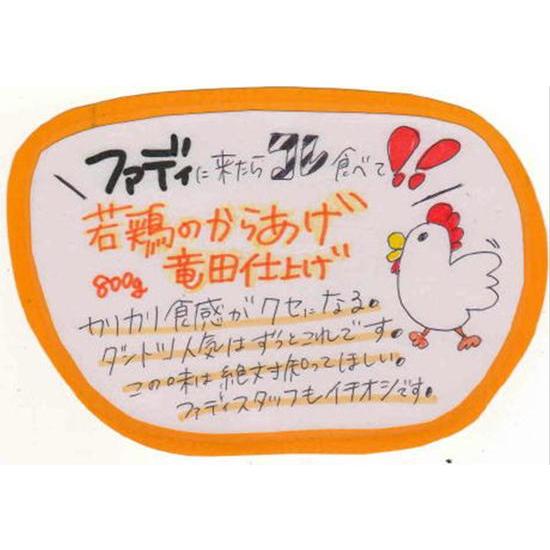 ファディに来たらコレ食べて!!
若鶏のからあげ
800g 竜田仕上げ
カリカリ食感がクセになる。
ダントツ人気はずっとこれです。
この味は絶対知ってほしい。
ファディスタッフもイチオシです。